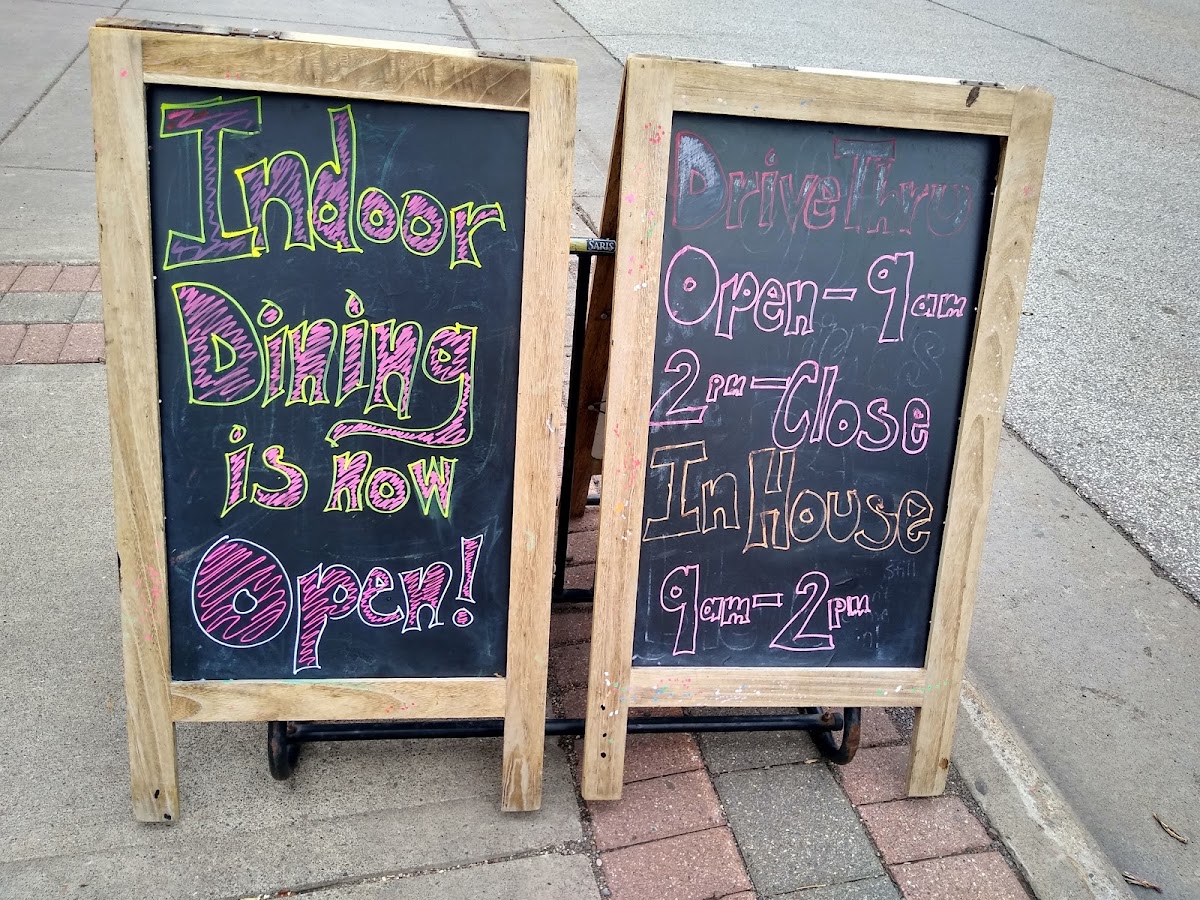 Indoor
Dining
is now
Open!
SARIS
DriveThru
Open - 9am
2pm - Close
In House
9am - 2pm
still